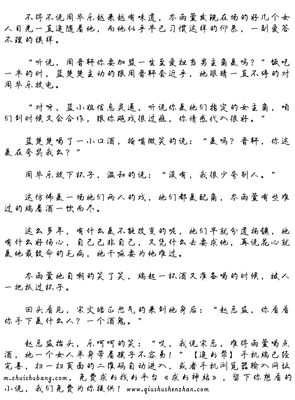 不得不说周华乐越来越有味道，岑雨萱发现在场的好几个女
人目光一直追随着他，而他似乎早已习惯这样的仰慕，一副爱答
不理的模样。
"听说，周晋轩你要参加盛一生至爱投当男主角是吗？"饭吃
一半的时，蓝楚楚主动的跟周晋轩套近乎，她眼睛一直不停的对
周华乐放电。
"对呀，蓝小姐信息灵通，听说你是他们指定的女主角，咱
们到时候又会合作，跟你拖戏很过瘾，你情感代入很好。"
蓝楚楚喝了一小口酒，掩嘴微笑的说："是吗？晋轩，你这
是在夸奖我么？"
周华乐放下杯子，温和的说："没有，我很少夸别人。"
这仿佛是一场他们两人的戏，他们都是配角，岑雨萱有些难
过的端着酒一饮而尽。
这么多年，有什么是不能改变的呢，他们早就分道扬镳，她
有什么好伤心，自己已非自己，又凭什么去要求他，再说花心就
是他最致命的毛病，她干嘛要为他难过。
岑雨萱她自嘲的笑了笑，端起一杯酒又准备喝的时候，被人
一把抓过杯子。
回头看见，宋文皓正怒气的来到她身后："赵总监，你看看
你手下是什么人？一个酒鬼。"
赵总监抬头，乐呵呵的笑："哎，我说宋总，难得雨萱喝点
酒，她一个女人半身带着孩子不容易！"【追书帮】手机端已经
完善，扫一扫页面的二维码自动进入，或者手机浏览器输入网址
m.zhuishubang.com，免费求书找书平台《求书神站》，留下你想看的
小说，我们免费为你提供！www.qiushushenzhan.com